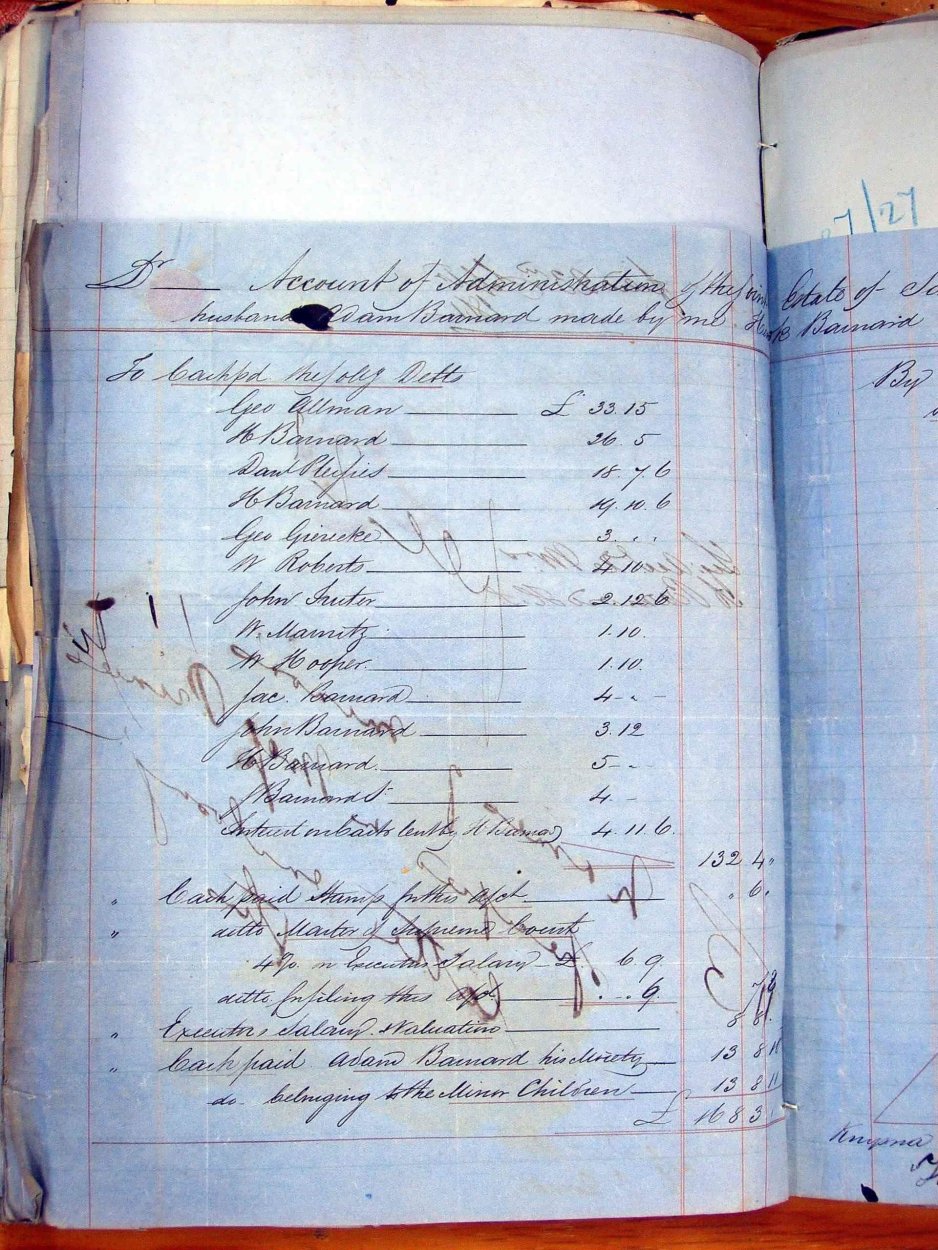 27/27
Dr Account of Administration of the Joint Estate of
husband Adam Barnard made by me Barnard
To Cash pd the folg Debts By
Geo Allman £ 33.15
H Barnard 26.5
Danl Plessies 18.7.6
H Barnard 19.10.6
Geo Gierecke 3. . .
W Roberts 4.10
John Suter 2.12.6
W. Marnitz 1.10.
W Hooper. 1.10.
Jac. Barnard 4 - . -
John Barnard 3.12
H Barnard. 5 - . -
J Barnard S 4. -
Interest on Cash lent by H Barnard 4.11.6.
132 4 "
" Cash paid Stamps for this Acct. " 6.
" ditto Master of Supreme Court
4 % on Executors Salary £ 6 9
ditto for filing this Acct . . . 9.
" Executors Salary & Valuation 8 8.
" Cash paid Adam Barnard his Moiety 13 8 11
do. belonging to the Minor Children 13 8 11
£ 168 3
Knysna